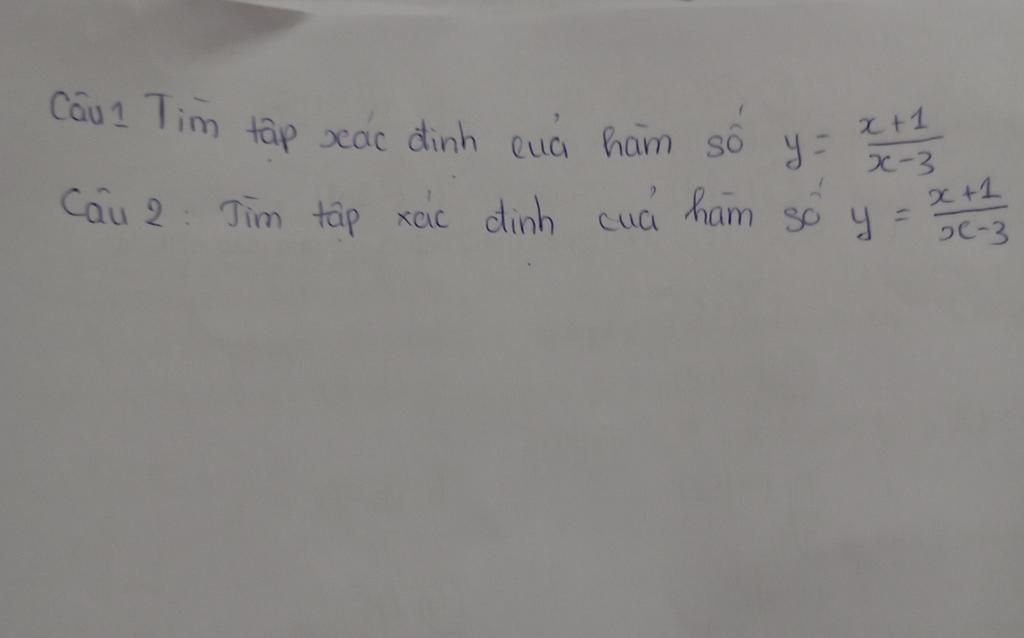 Câu 1 Tìm tập xác định của hàm số y = \frac{x+1}{x-3}
Câu 2 : Tìm tập xác định của hàm số y = \frac{x+1}{x-3}